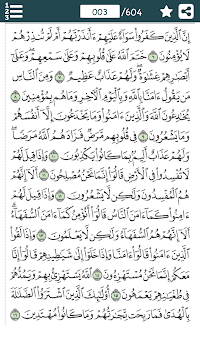 003 /604
إِنَّ ٱلَّذِينَ كَفَرُوا۟ سَوَآءٌ عَلَيْهِمْ ءَأَنذَرْتَهُمْ أَمْ لَمْ تُنذِرْهُمْ
لَا يُؤْمِنُونَ ٦ خَتَمَ ٱللَّهُ عَلَىٰ قُلُوبِهِمْ وَعَلَىٰ سَمْعِهِمْ ۖ وَعَلَىٰٓ
أَبْصَٰرِهِمْ غِشَٰوَةٌ ۖ وَلَهُمْ عَذَابٌ عَظِيمٌ ٧ وَمِنَ ٱلنَّاسِ
مَن يَقُولُ ءَامَنَّا بِٱللَّهِ وَبِٱلْيَوْمِ ٱلْـَٔاخِرِ وَمَا هُم بِمُؤْمِنِينَ ٨
يُخَٰدِعُونَ ٱللَّهَ وَٱلَّذِينَ ءَامَنُوا۟ وَمَا يَخْدَعُونَ إِلَّآ أَنفُسَهُمْ
وَمَا يَشْعُرُونَ ٩ فِى قُلُوبِهِم مَّرَضٌ فَزَادَهُمُ ٱللَّهُ مَرَضًا ۖ
وَلَهُمْ عَذَابٌ أَلِيمٌۢ بِمَا كَانُوا۟ يَكْذِبُونَ ١٠ وَإِذَا قِيلَ لَهُمْ
لَا تُفْسِدُوا۟ فِى ٱلْأَرْضِ قَالُوٓا۟ إِنَّمَا نَحْنُ مُصْلِحُونَ ١١ أَلَآ إِنَّهُمْ
هُمُ ٱلْمُفْسِدُونَ وَلَٰكِن لَّا يَشْعُرُونَ ١٢ وَإِذَا قِيلَ لَهُمْ
ءَامِنُوا۟ كَمَآ ءَامَنَ ٱلنَّاسُ قَالُوٓا۟ أَنُؤْمِنُ كَمَآ ءَامَنَ ٱلسُّفَهَآءُ ۗ
أَلَآ إِنَّهُمْ هُمُ ٱلسُّفَهَآءُ وَلَٰكِن لَّا يَعْلَمُونَ ١٣ وَإِذَا لَقُوا۟
ٱلَّذِينَ ءَامَنُوا۟ قَالُوٓا۟ ءَامَنَّا وَإِذَا خَلَوْا۟ إِلَىٰ شَيَٰطِينِهِمْ قَالُوٓا۟ إِنَّا
مَعَكُمْ إِنَّمَا نَحْنُ مُسْتَهْزِءُونَ ١٤ ٱللَّهُ يَسْتَهْزِئُ بِهِمْ وَيَمُدُّهُمْ
فِى طُغْيَٰنِهِمْ يَعْمَهُونَ ١٥ أُو۟لَٰٓئِكَ ٱلَّذِينَ ٱشْتَرَوُا۟ ٱلضَّلَٰلَةَ
بِٱلْهُدَىٰ فَمَا رَبِحَت تِّجَٰرَتُهُمْ وَمَا كَانُوا۟ مُهْتَدِينَ ١٦